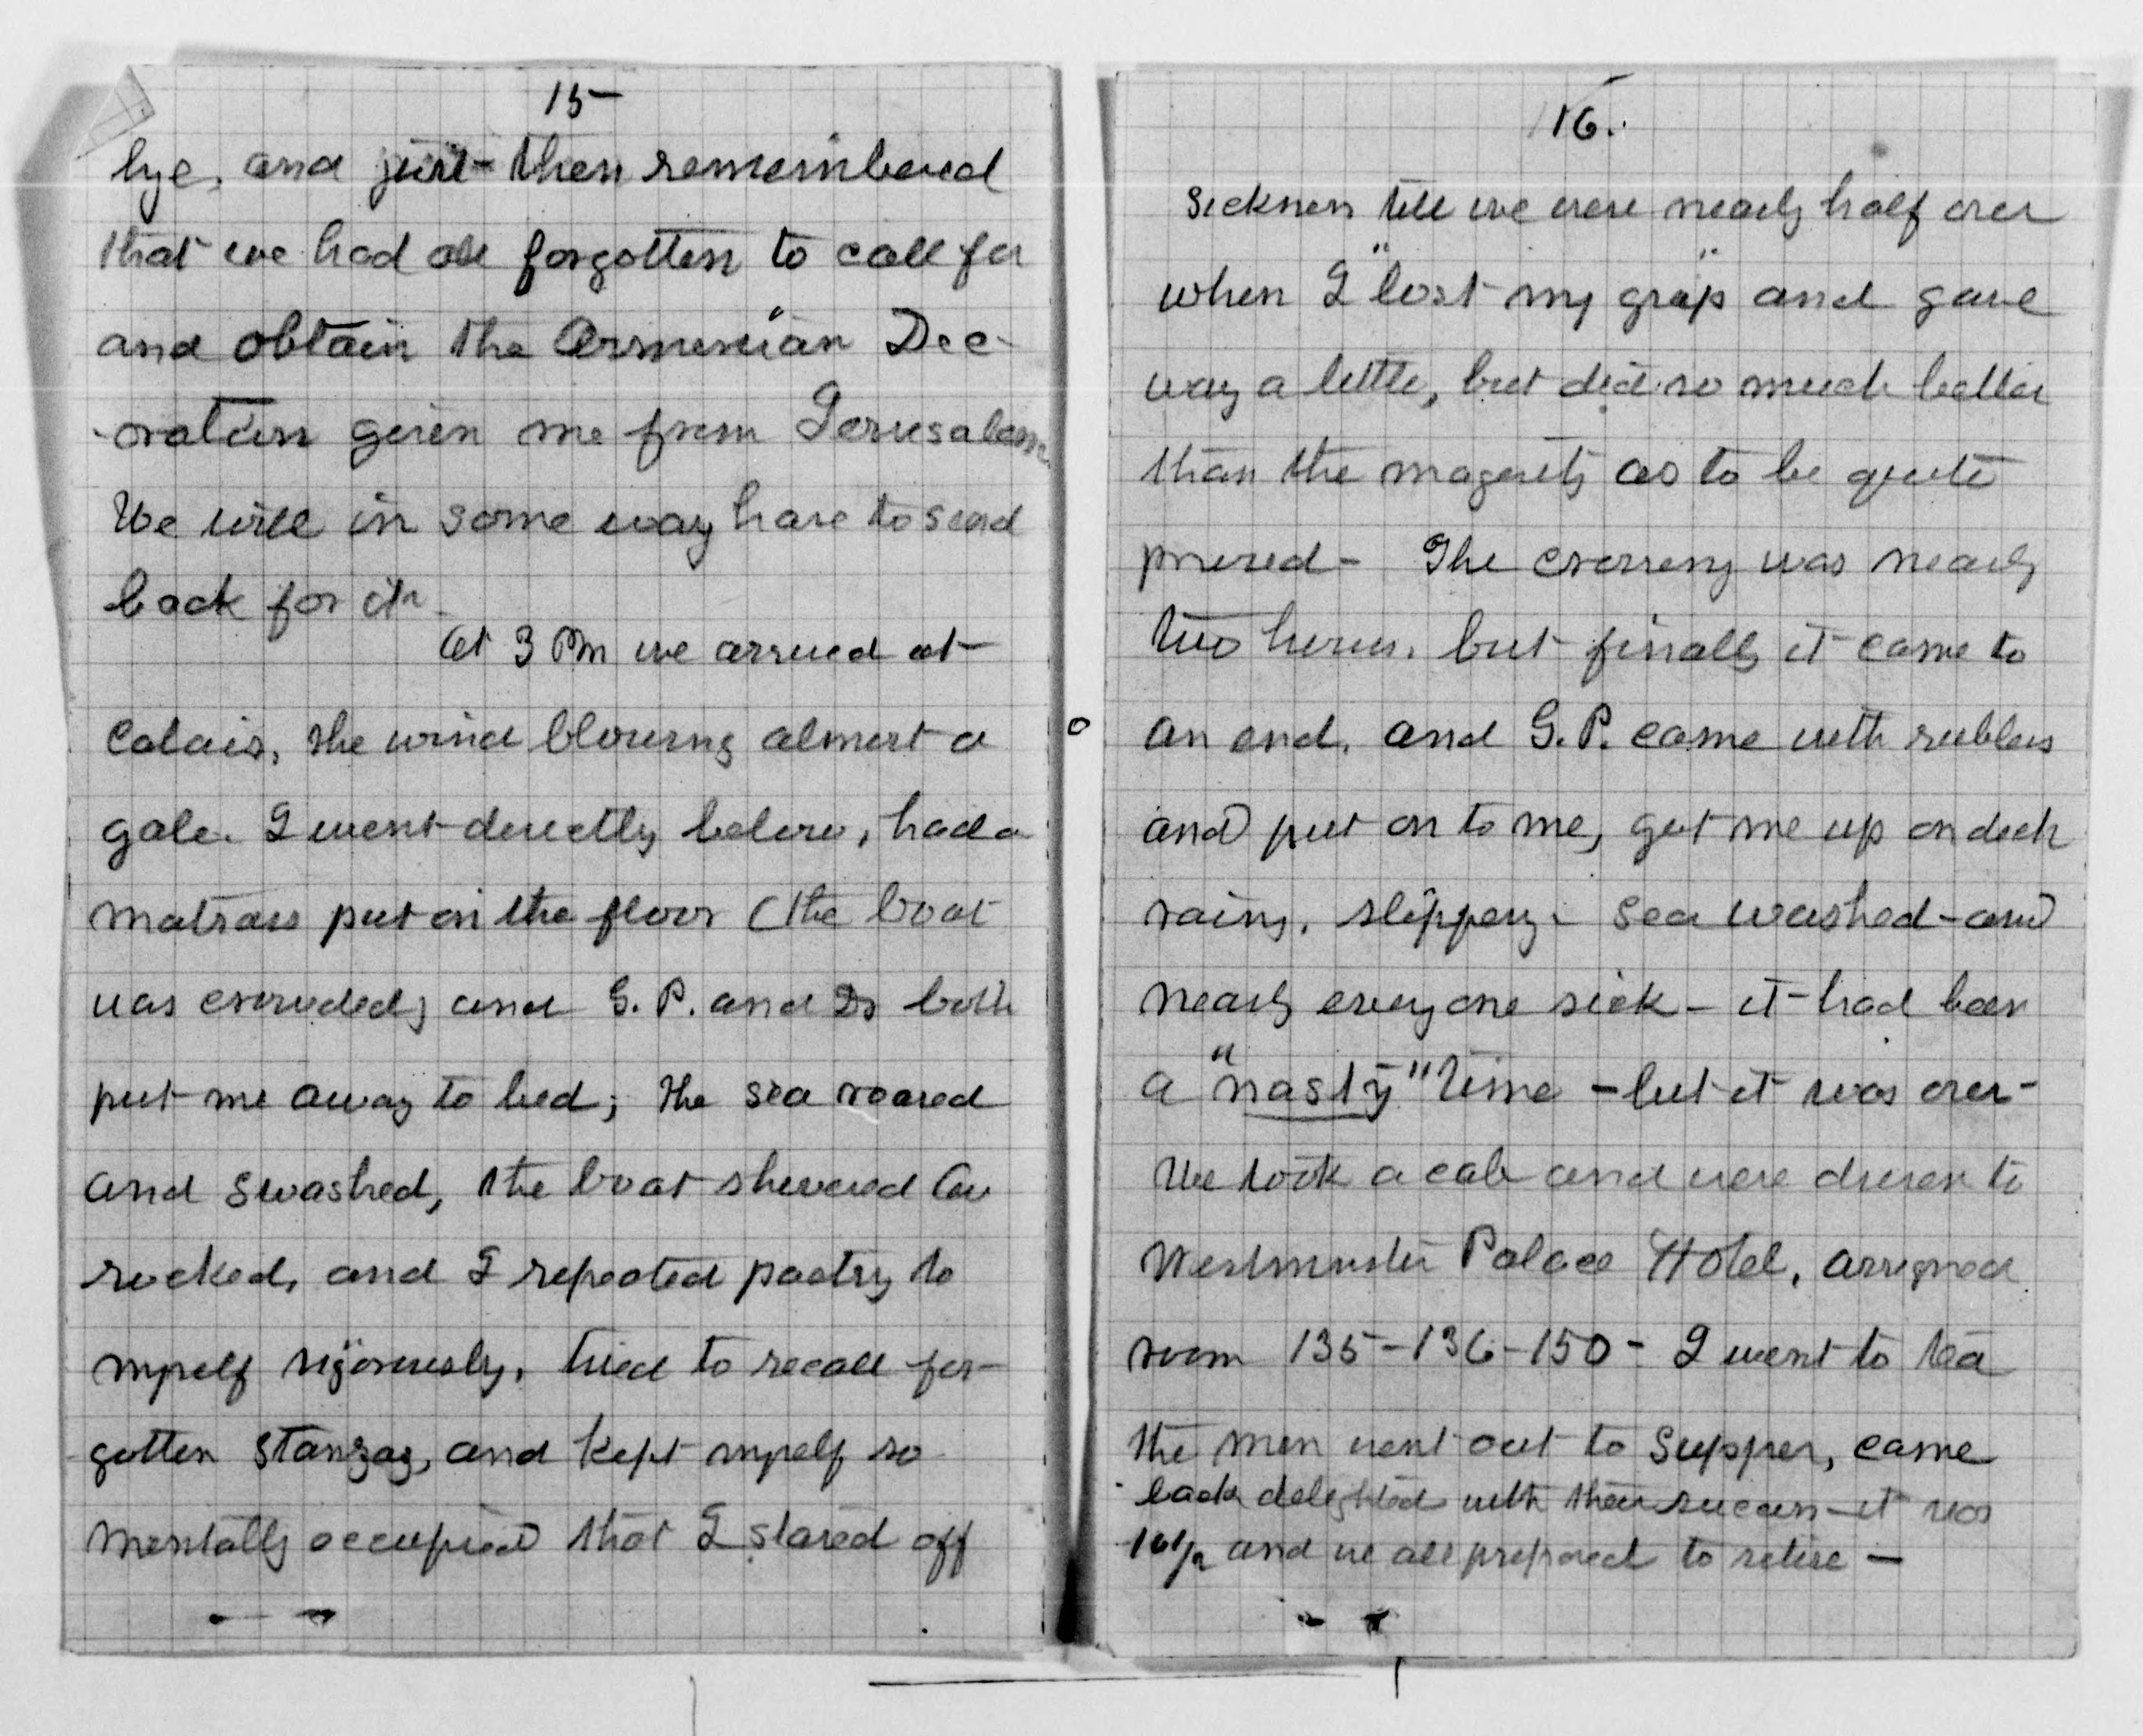 15
bye, and just then remembered
that we had all forgotten to call for
and obtain the Armenian Dec-
-oration given me from Jerusalem.
We will in some way have to send
back for it.
At 3 PM we arrived at
Calais, the wind blowing almost a
gale. I went directly below, had a
matrass put on the floor (the boat
was crowded) and G. P. and Dr both
put me away to bed; the sea roared
and swashed, the boat shivered and
rocked, and I repeated poetry to
myself vigorously, tried to recall for-
gotten stanzas, and kept myself so
mentally occupied that I stared off
16.
sickness till we were nearly half over
when I "lost my grip" and gave
way a little, but did so much better
than the magority as to be quite
prised - The crossing was nearly
two hours, but finally it came to
an end, and G. P. came with rubbers
and put on to me, got me up on deck
rainy, slippery - sea washed - and
nearly every one sick - it had been
a "nasty" time - but it was over -
We took a cab and were driven to
Westminster Palace Hotel, assigned
room 135 - 136 - 150 - I went to tea
the men went out to supper, came
back delighted with their success - it was
10 1/2 and we all prepared to retire —